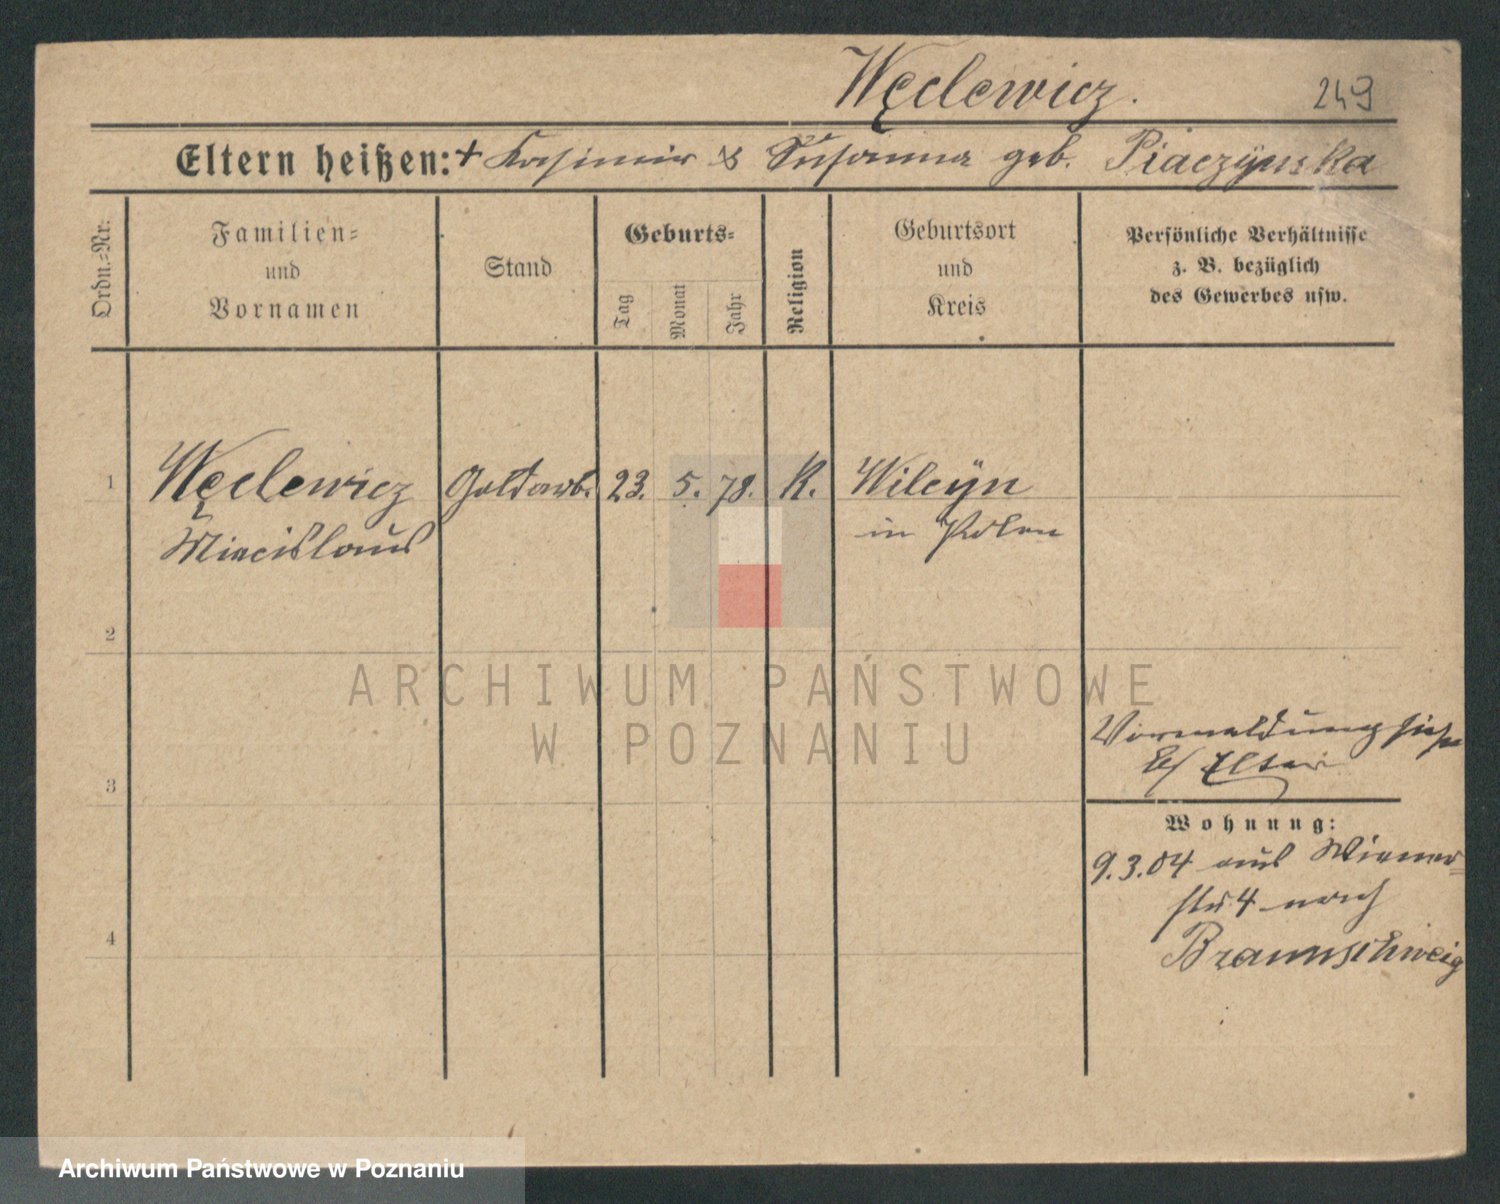 Węclewicz.
249
Eltern heißen: + Kasimir & Susanna geb. Piaczynska
Ordn.-Nr.
Familien-
und
Vornamen
Stand
Geburts-
Tag
Monat
Jahr
Religion
Geburtsort
und
Kreis
Persönliche Verhältnisse
z. B. bezüglich
des Gewerbes usw.
1
Węclewicz
Goldarb.
23.
5.
78.
K.
Wilcÿn
Miecislaus
in Polen
2
ARCHIWUM PAŃSTWOWE
W POZNANIU
Vormeldung siehe
b/ Eltern
3
Wohnung:
9.3.04 aus Wiener-
str 4 nach
Braunschweig
4
Archiwum Państwowe w Poznaniu